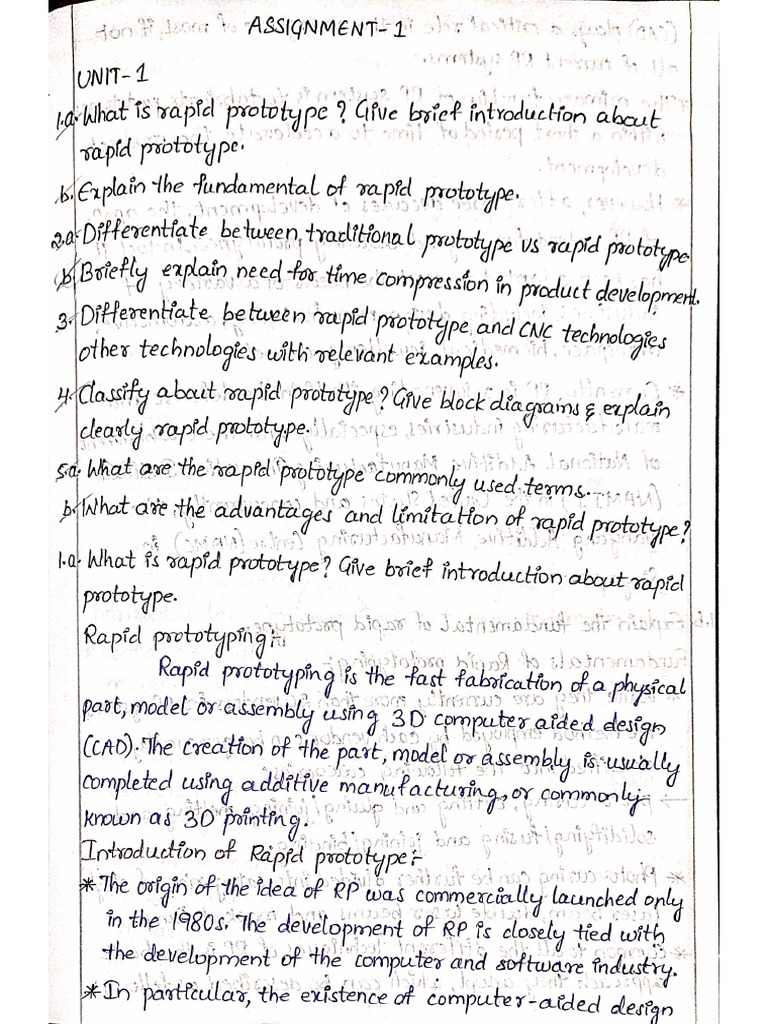 ASSIGNMENT-1
UNIT-1
1.a. What is rapid prototype? Give brief introduction about
rapid prototype.
b. Explain the fundamental of rapid prototype.
2.a. Differentiate between, traditional prototype vs rapid prototype
b. Briefly explain need for time compression in product development.
3. Differentiate between rapid prototype and CNC technologies
other technologies with relevant examples.
4. Classify about rapid prototype? Give block diagrams & explain
clearly rapid prototype.
5.a. What are the rapid prototype commonly used terms.
b. What are the advantages and limitation of rapid prototype?
1.a. What is rapid prototype? Give brief introduction about rapid
prototype.
Rapid prototyping:-
Rapid prototyping is the fast fabrication of a physical
part, model or assembly using 3D computer aided design
(CAD). The creation of the part, model or assembly is usually
completed using additive manufacturing, or commonly
known as 3D printing.
Introduction of Rapid prototype:-
* The origin of the idea of RP was commercially launched only
in the 1980s. The development of RP is closely tied with
the development of the computer and software industry.
* In particular, the existence of computer-aided design